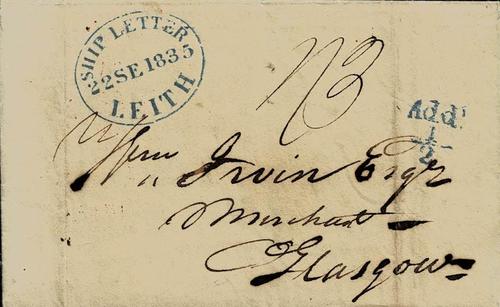 SHIP LETTER
22 SE 1835
LEITH
Addl
1/2
Wm Irvin Esqr
Merchant
Glasgow